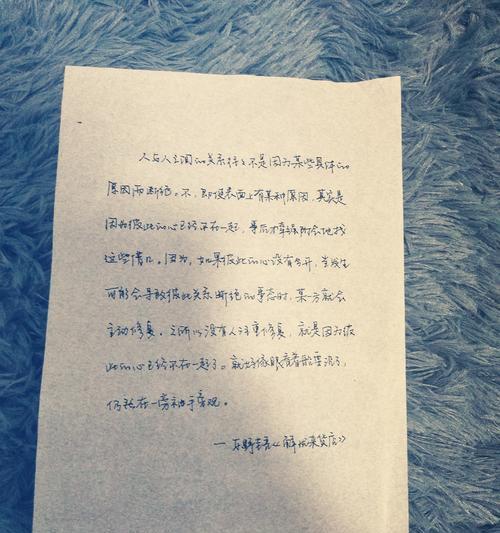 人与人之间的关系往往不是因为某些具体的
原因而断绝。不,即使表面上有某种原因,其实是
因为彼此的心已经不在一起,事后才牵强附会地找
这些借口。因为,如果彼此的心没有分开,当发生
可能会导致彼此关系断绝的事态时,某一方就会
主动修复。之所以没有人注重修复,就是因为彼
此的心已经不在一起了。就好像眼看着船要沉了,
仍然在一旁袖手旁观。
— 东野圭吾《解忧杂货店》